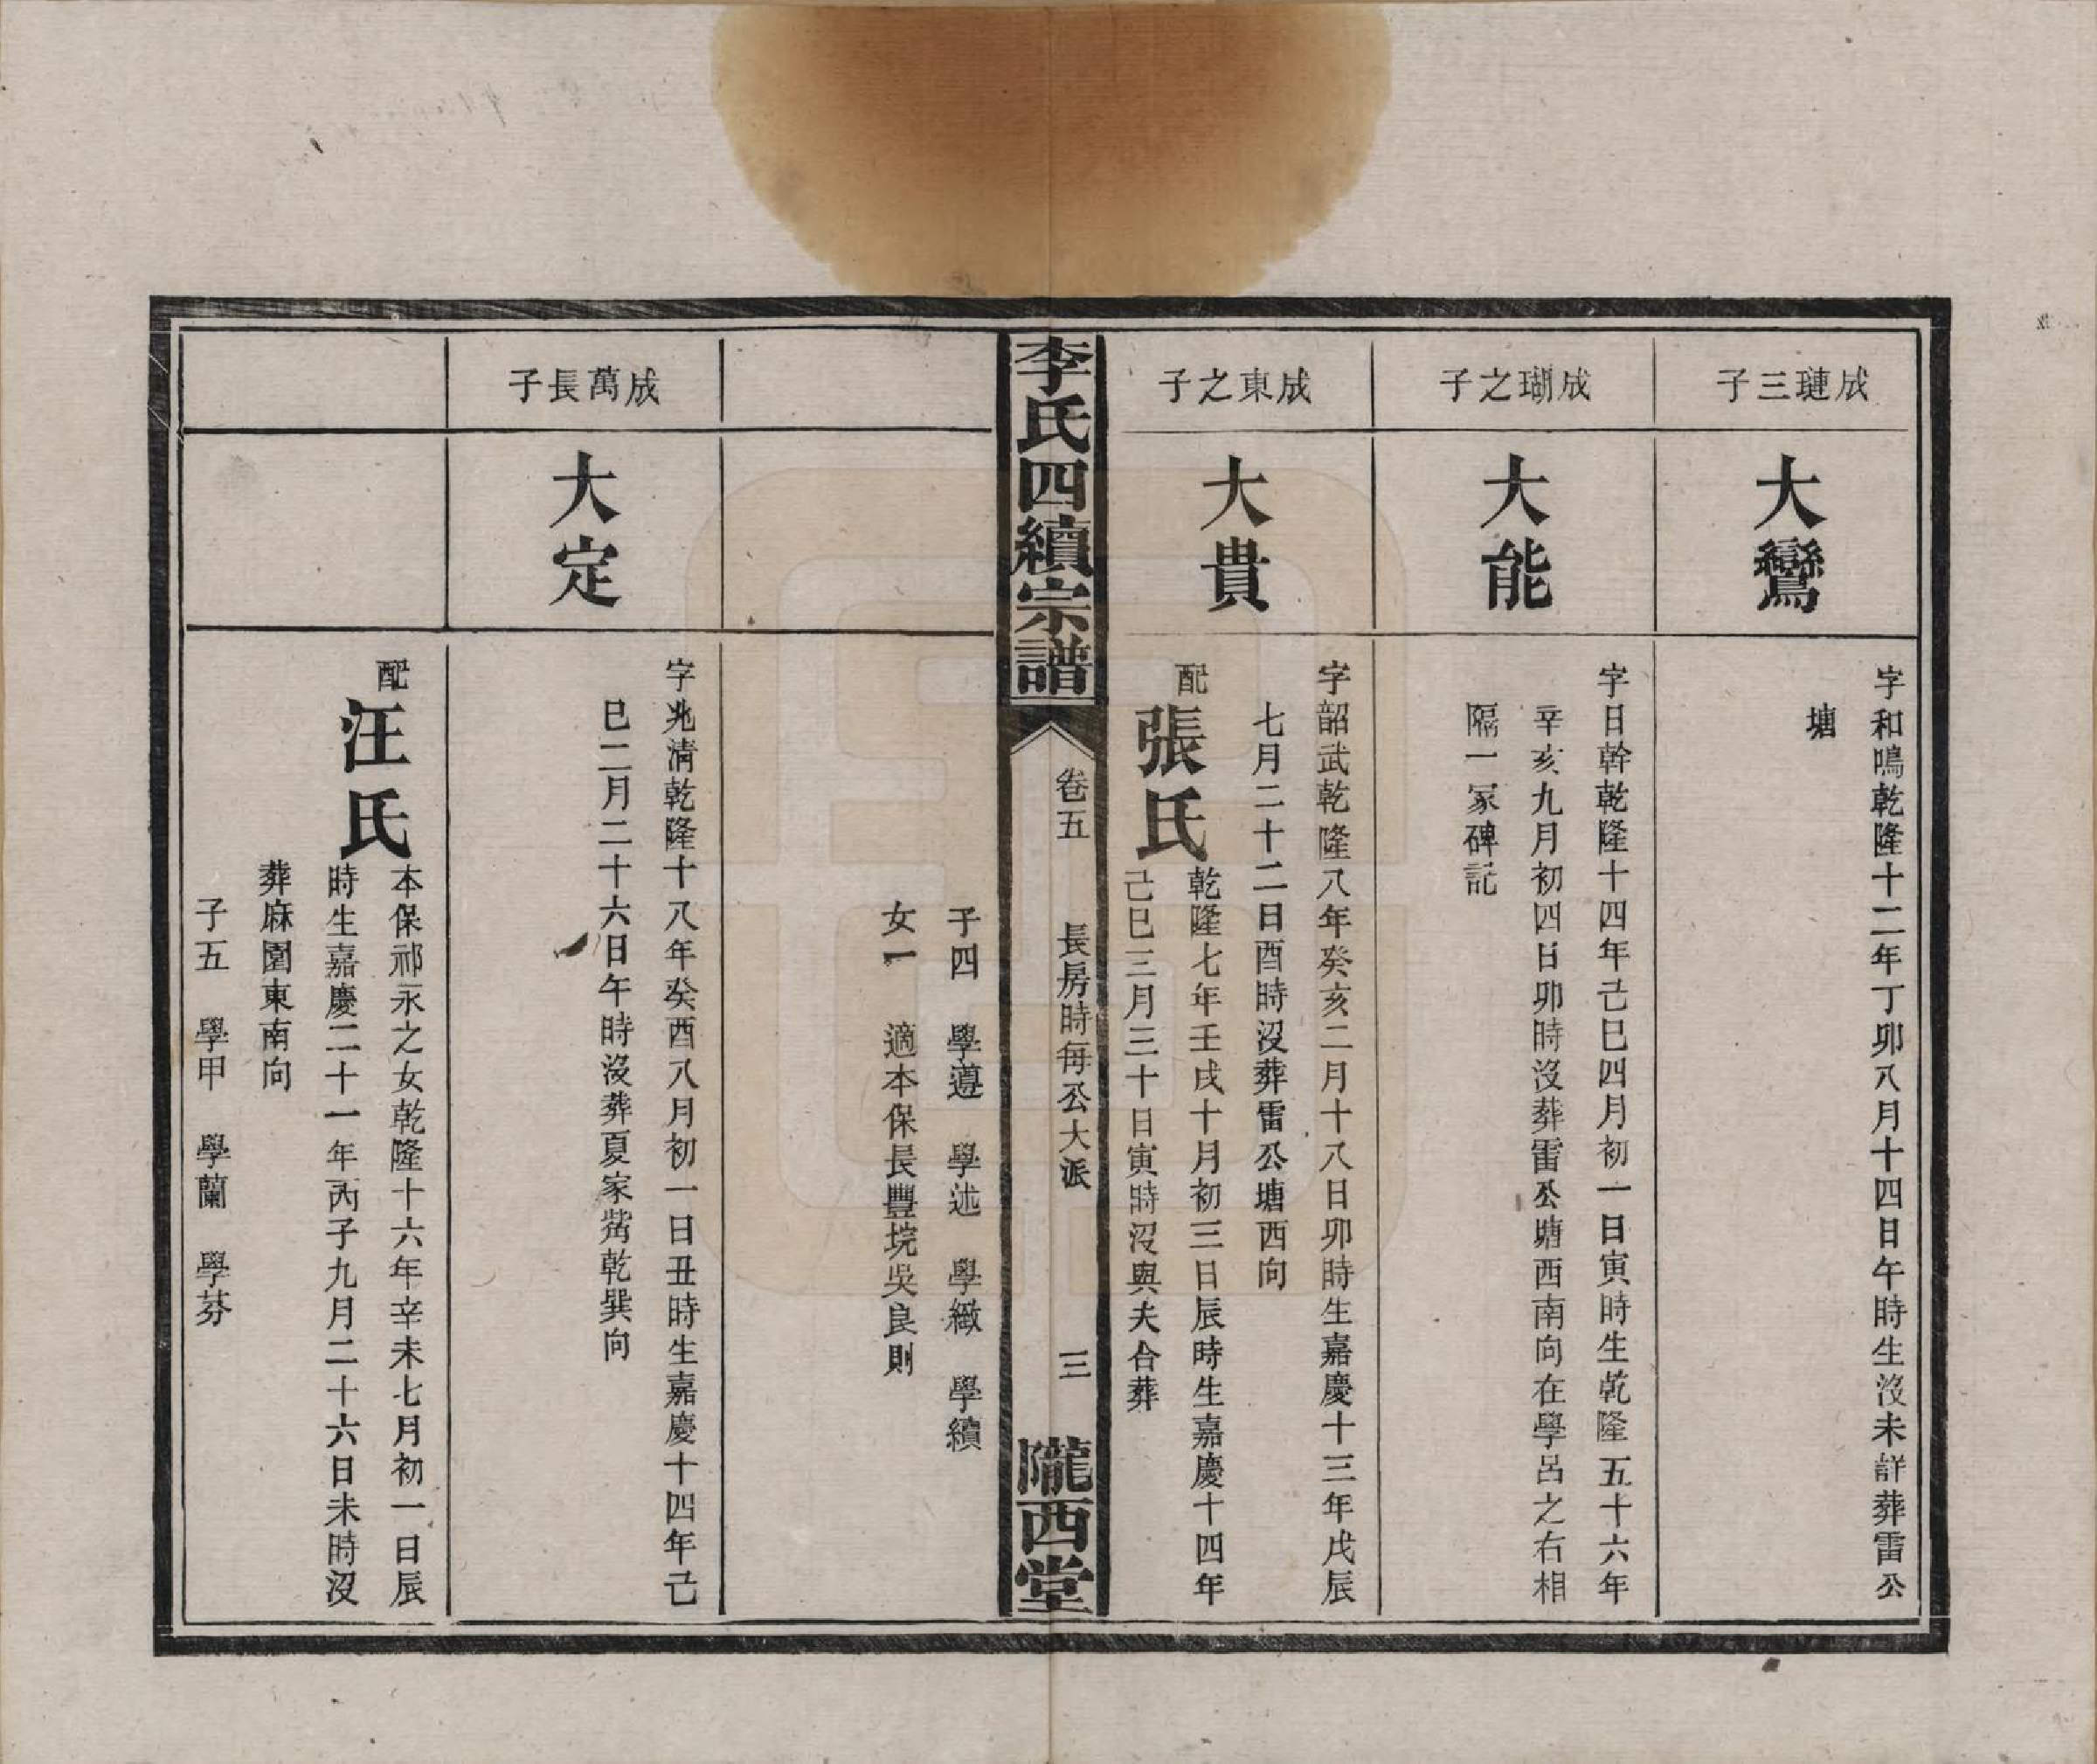 成璉三子
大鸞
字和鳴乾隆十二年丁卯八月十四日午時生沒未詳葬雷公
塘
成瑚之子
大能
字日幹乾隆十四年己巳四月初一日寅時生乾隆五十六年
辛亥九月初四日卯時沒葬雷公塘西南向在學呂之右相
隔一冢碑記
成東之子
大貴
字韶武乾隆八年癸亥二月十八日卯時生嘉慶十三年戊辰
七月二十二日酉時沒葬雷公塘西向
配張氏
乾隆七年壬戌十月初三日辰時生嘉慶十四年
己巳三月三十日寅時沒與夫合葬
李氏四續宗譜
卷五
長房時每公大派
三
隴西堂
子四 學遵 學述 學緻 學續
女一 適本保長豐垸吳良則
成萬長子
大定
字兆清乾隆十八年癸酉八月初一日丑時生嘉慶十四年己
巳二月二十六日午時沒葬夏家嘴乾巽向
配汪氏
本保祁永之女乾隆十六年辛未七月初一日辰
時生嘉慶二十一年丙子九月二十六日未時沒
葬麻園東南向
子五 學甲 學蘭 學芬